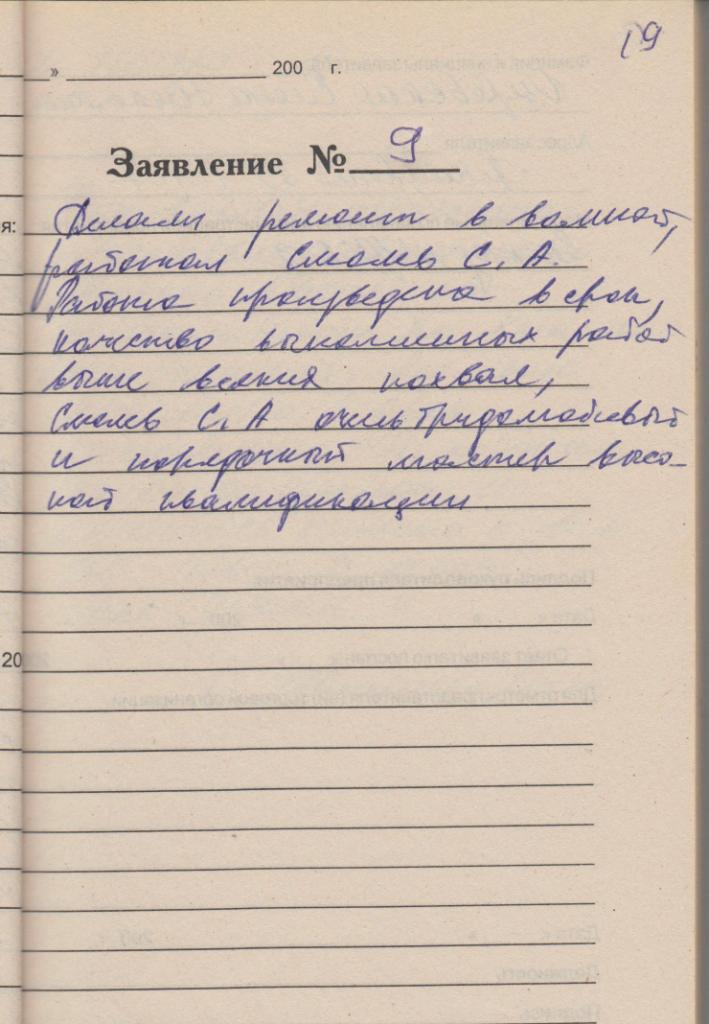 19
» 200 г.
Заявление № 9
я:
Делали ремонт в ванной,
работал С. А.
Работа произведена в срок,
качество выполненных работ
выше всякия похвал,
С. А очень трудолюбивый
и порядочный мастер высо-
кой квалификации
20